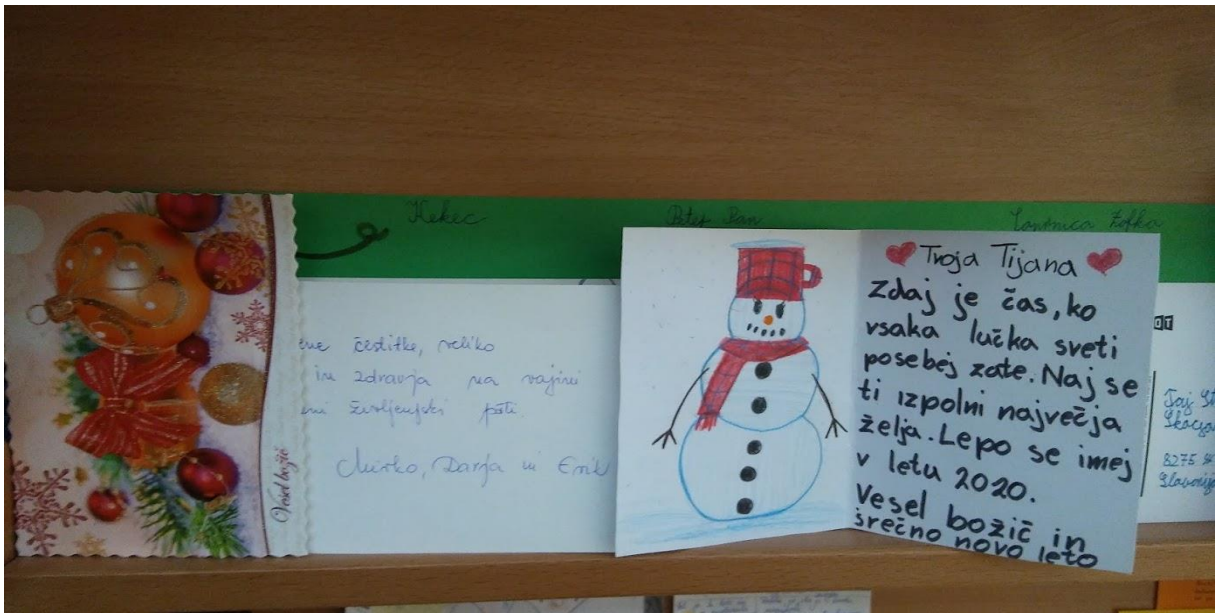 Kekec
Peter Pan
Zofka
Vesel božič
čestitke, veliko
in zdravja na vajini
življenjski poti.
Mirko, Darja in Erik
Tvoja Tijana
Zdaj je čas, ko
vsaka lučka sveti
posebej zate. Naj se
ti izpolni največja
želja. Lepo se imej
v letu 2020.
Vesel božič in
srečno novo leto
8275